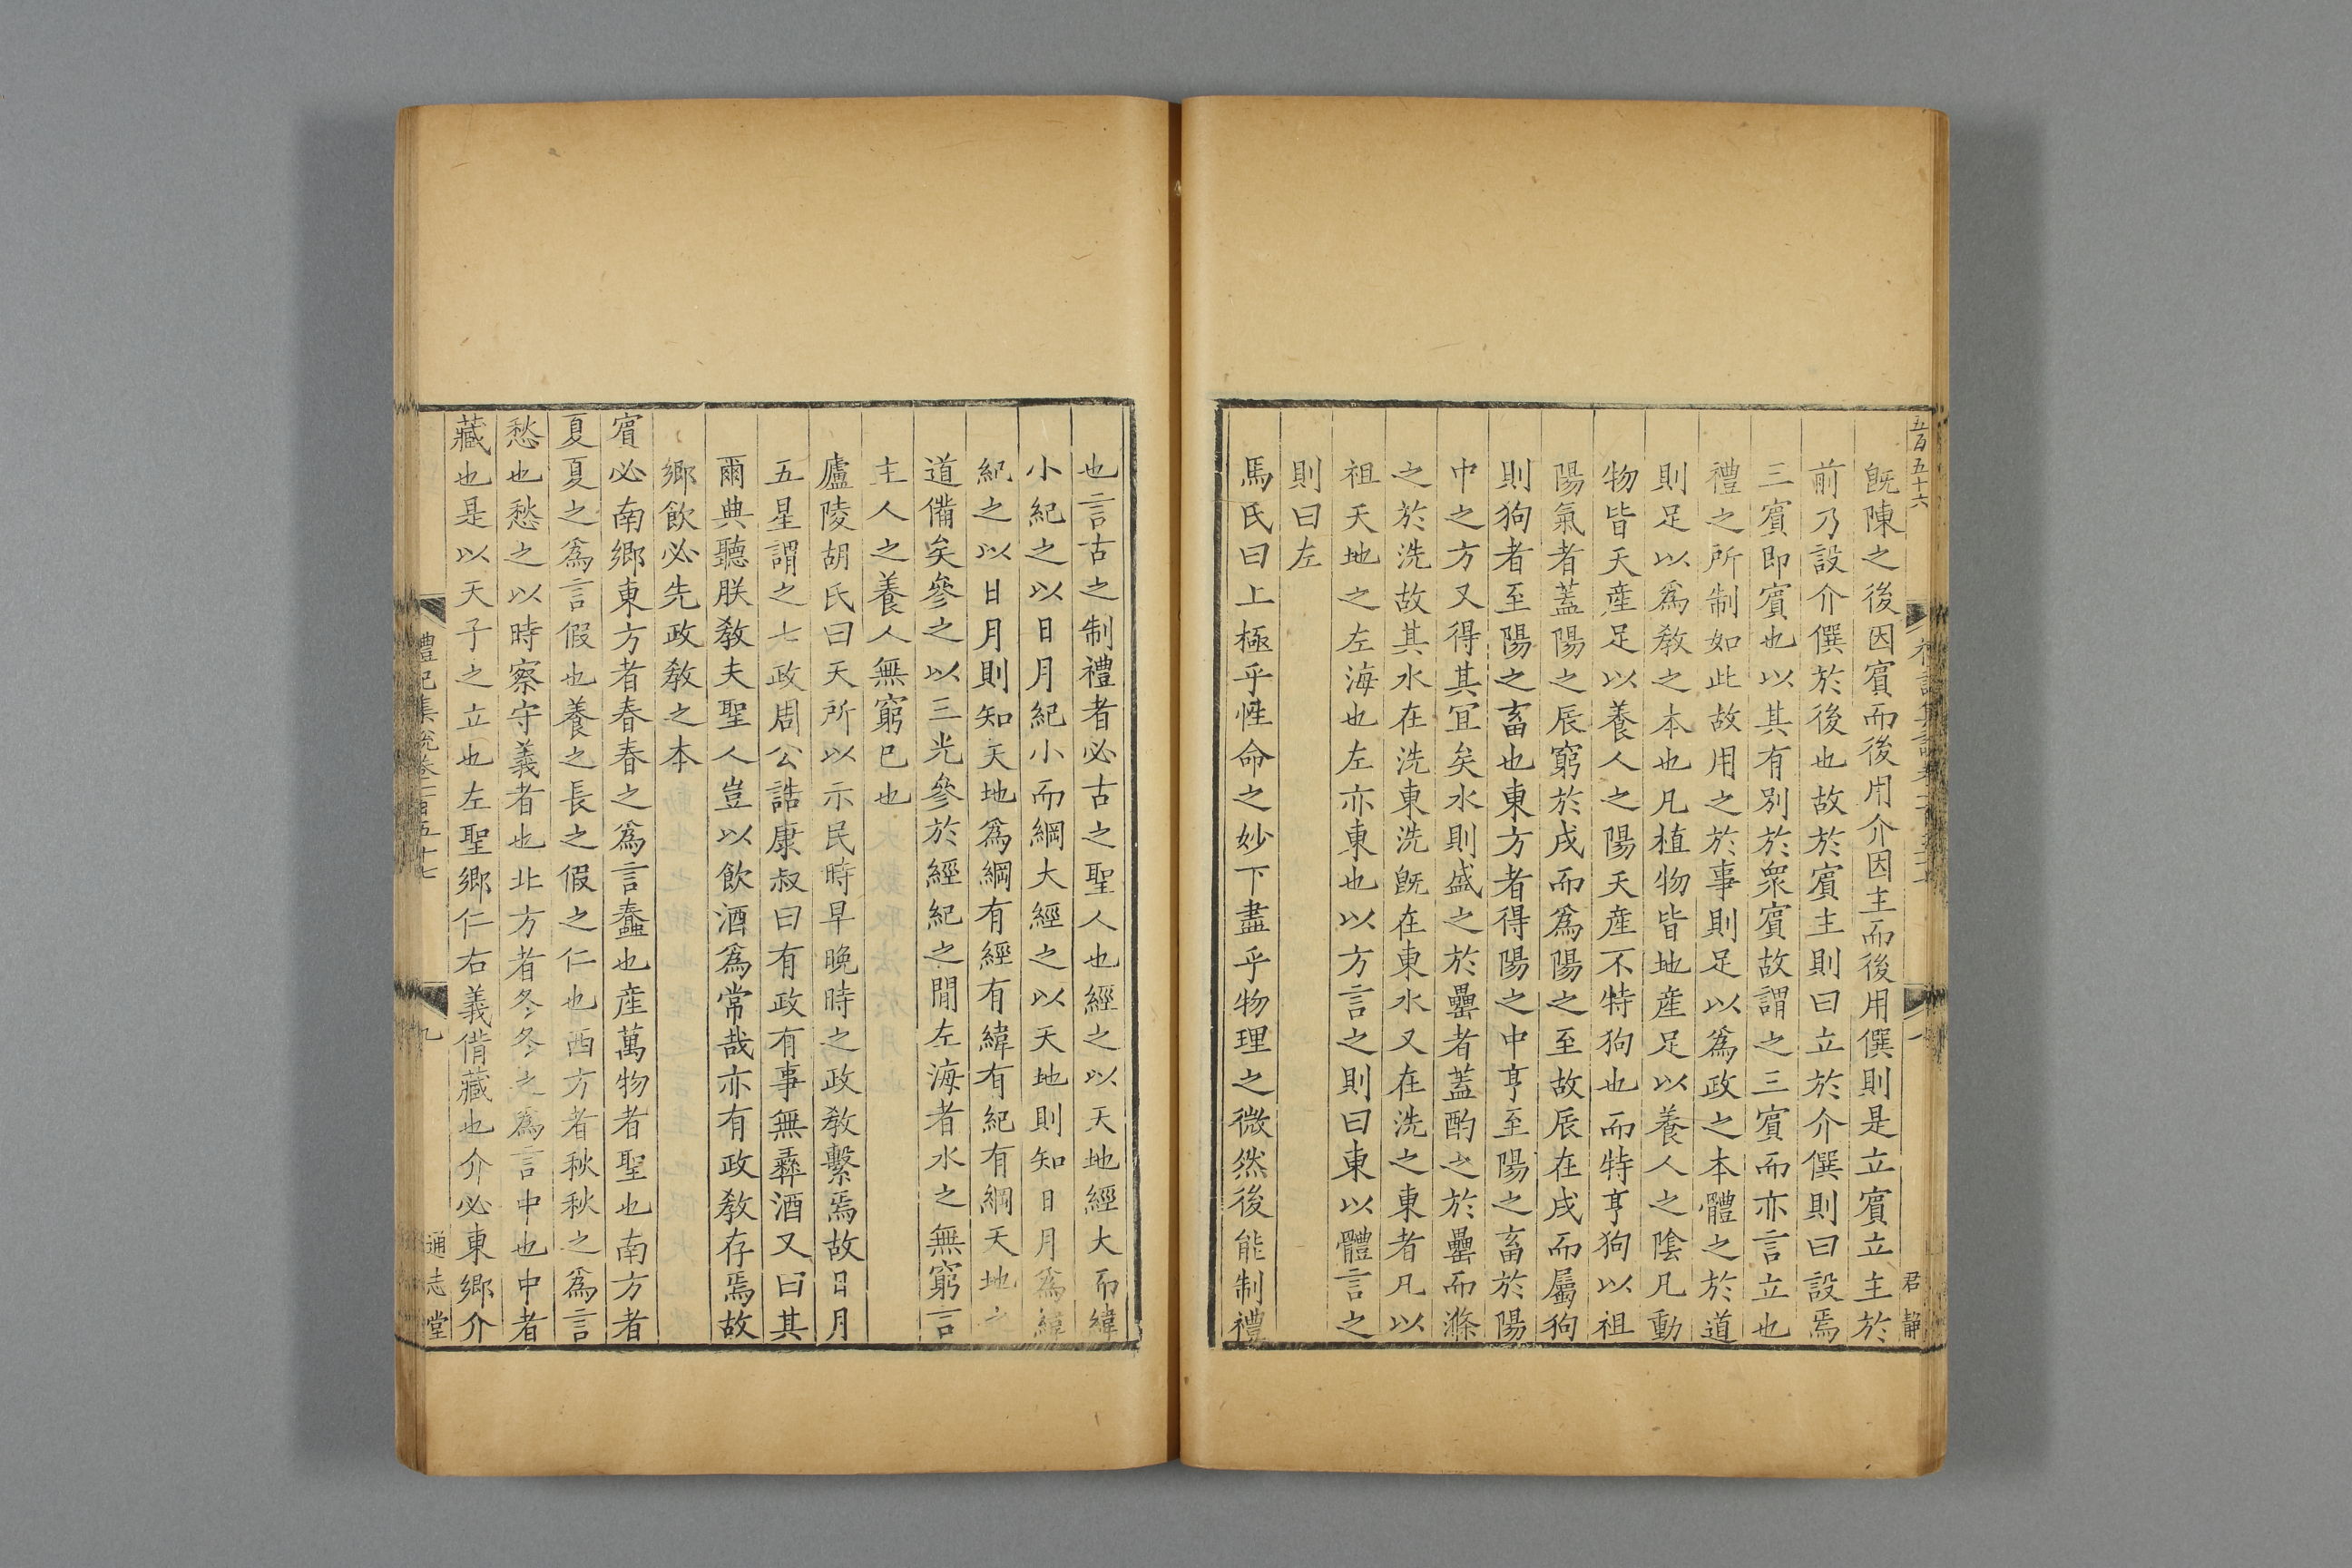 五百五十六
君靜
既陳之後因賔而後用介因主而後用僎則是立賔立主於
前乃設介僎於後也故於賔主則曰立於介僎則曰設焉
三賔即賔也以其有別於衆賔故謂之三賔而亦言立也
禮之所制如此故用之於事則足以爲政之本體之於道
則足以爲敎之本也凡植物皆地產足以養人之陰凡動
物皆天產足以養人之陽天產不特狗也而特亨狗以祖
陽氣者蓋陽之辰窮於戌而爲陽之至故辰在戌而屬狗
則狗者至陽之畜也東方者得陽之中亨至陽之畜於陽
中之方又得其冝矣水則盛之於罍者蓋酌之於罍而滌
之於洗故其水在洗東洗既在東水又在洗之東者凡以
祖天地之左海也左亦東也以方言之則曰東以體言之
則曰左
馬氏曰上極乎性命之妙下盡乎物理之微然後能制禮
也言古之制禮者必古之聖人也經之以天地經大而緯
小紀之以日月紀小而綱大經之以天地則知日月爲緯
紀之以日月則知天地爲綱有經有緯有紀有綱天地之
道備矣參之以三光參於經紀之閒左海者水之無窮言
主人之養人無窮已也
廬陵胡氏曰天所以示民時早晚時之政敎繫焉故日月
五星謂之七政周公誥康叔曰有政有事無彝酒又曰其
爾典聽朕敎夫聖人豈以飲酒爲常哉亦有政敎存焉故
鄉飲必先政敎之本
賔必南鄉東方者春春之爲言蠢也產萬物者聖也南方者
夏夏之爲言假也養之長之假之仁也西方者秋秋之爲言
愁也愁之以時察守義者也北方者冬冬之爲言中也中者
藏也是以天子之立也左聖鄉仁右義偝藏也介必東鄉介
禮記集說卷一百五十七
九
通志堂